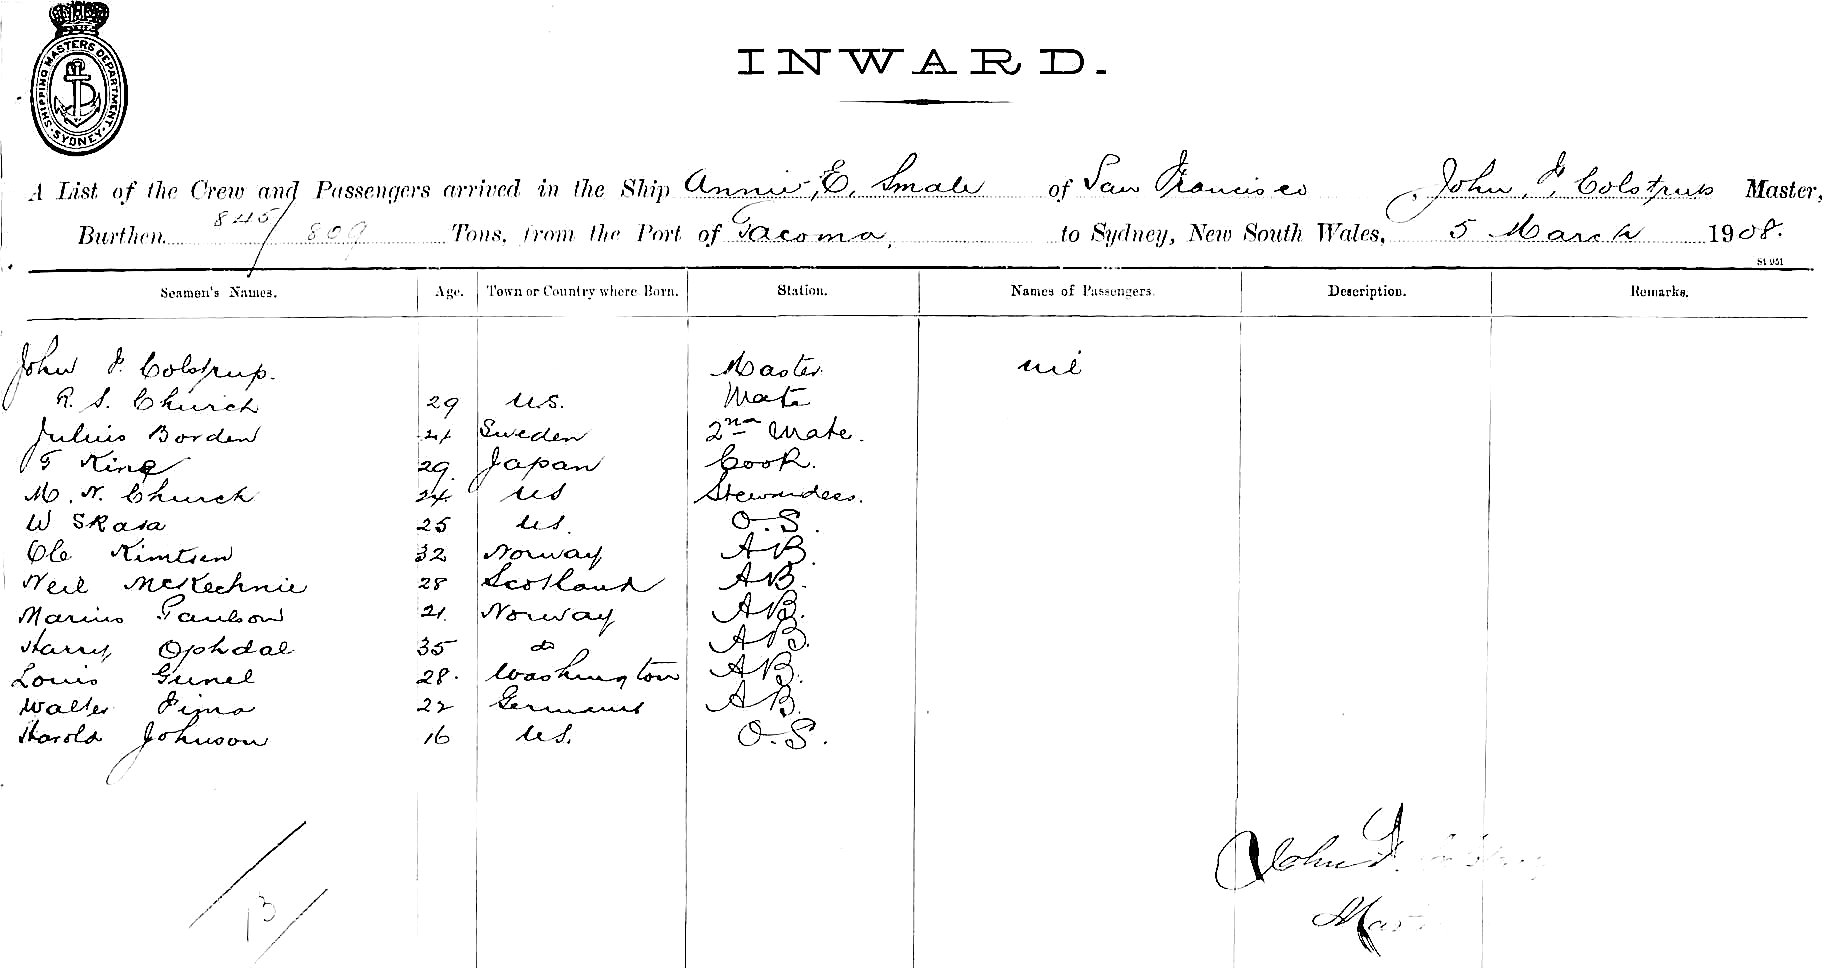 SHIPPING MASTERS DEPARTMENT · SYDNEY ·
INWARD.
A List of the Crew and Passengers arrived in the Ship Annie E. Smale of San Francisco, John F. Colstrup Master,
Burthen 845/809 Tons, from the Port of Tacoma, to Sydney, New South Wales, 5 March 1908.
St 951
Seamen's Names. Age. Town or Country where Born. Station. Names of Passengers. Description. Remarks.
John F. Colstrup. Master nil
R. S. Church 29 U.S. Mate
Julius Borden Sweden 2nd Mate.
T King 29. Japan Cook.
M. N. Church 24. US Stewardess.
W Skasa 25 US. O.S.
Ole Kimtsen 32 Norway AB.
Neil McKechnie 28 Scotland AB.
Marius Paulson 21. Norway AB.
Harry Ophdal 35 do AB.
Louis Gunel 28. Washington AB.
Walter 22 Germany AB.
Harold Johnson 16 US. O.S.
John F.
13